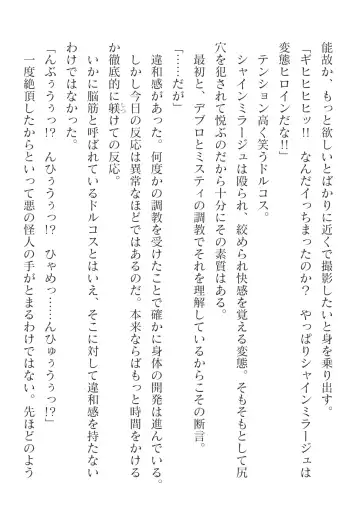 能故か、もっと欲しいとばかりに近くで撮影したいと身を乗り出す。
「ギヒヒヒヒッ!! なんだイっちまったのか? やっぱりシャインミラージュは
変態ヒロインだな!!」
テンション高く笑うドルコス。
シャインミラージュは殴られ、絞められ快感を覚える変態。そもそもとして尻
穴を犯されて悦ぶのだから十分にその素質はある。
最初と、デブロとミスティの調教でそれを理解しているからこその断言。
「……だが」
違和感があった。何度かの調教を受けたことで確かに身体の開発は進んでいる。
しかし今日の反応は異常なほどではあるのだ。本来ならばもっと時間をかける
か徹底的に躾けての反応。
いかに脳筋と呼ばれているドルコスとはいえ、そこに対して違和感を持たない
わけではなかった。
「んぶぅうぅっ!? んひぅうぅっ!? ひゃめっ……んひゅぅうぅっ!?」
一度絶頂したからといって悪の怪人の手がとまるわけではない。先ほどのよう